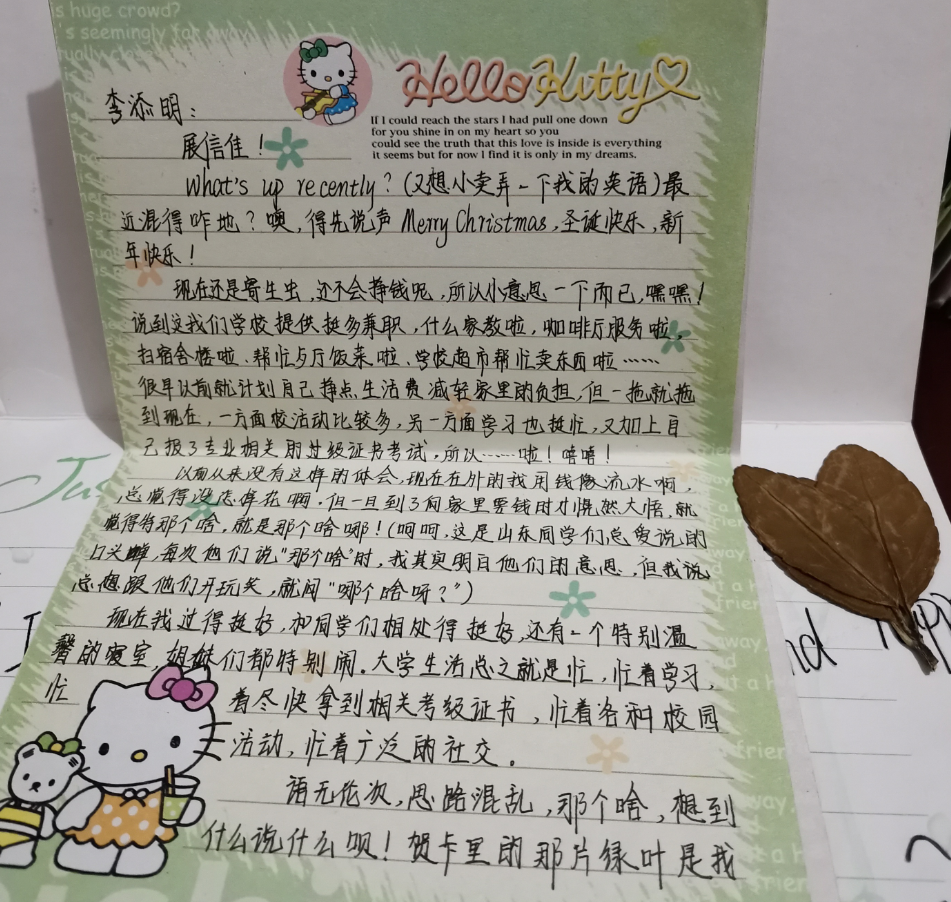 s huge crowd?
's seemingly far away
Hello Kitty
If I could reach the stars I had pull one down
for you shine in on my heart so you
could see the truth that this love is inside is everything
it seems but for now I find it is only in my dreams.
李添明：
展信佳！
What's up recently？（又想小卖弄一下我的英语）最
近混得咋地？噢，得先说声 Merry Christmas，圣诞快乐，新
年快乐！
现在还是寄生虫，还不会挣钱呢，所以小意思一下而已，嘿嘿！
说到这我们学校提供挺多兼职，什么家教啦，咖啡厅服务啦，
扫宿舍楼啦、帮忙与厅饭菜啦、学校超市帮忙卖东西啦……
很早以前就计划自己挣点生活费减轻家里的负担，但一拖就拖
到现在，一方面校活动比较多，另一方面学习也挺忙，又加上自
己报了专业相关的过级证书考试，所以……啦！嘻嘻！
以前从来没有这样的体会，现在在外的我用钱像流水啊，
总觉得没怎样花啊。但一旦到了向家里要钱时才恍然大悟，就
觉得特那个啥，就是那个啥哪！（呵呵，这是山东同学们总爱说的
口头蝉，每次他们说“那个啥”时，我其实明白他们的意思，但我说
总想跟他们开玩笑，就问“哪个啥呀？”）
现在我过得挺好，和同学们相处得挺好，还有一个特别温
馨的寝室，姐妹们都特别闹。大学生活总之就是忙，忙着学习，
忙着尽快拿到相关考级证书，忙着各种校园
活动，忙着广泛的社交。
语无伦次，思路混乱，那个啥，想到
什么说什么呗！贺卡里的那片绿叶是我